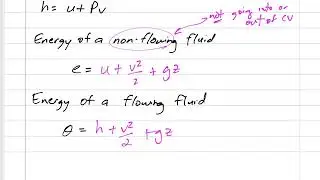 h = u + Pv
not going into or
out of CV
Energy of a non-flowing fluid
e = u + v²/2 + gz
Energy of a flowing fluid
θ = h + v²/2 + gz